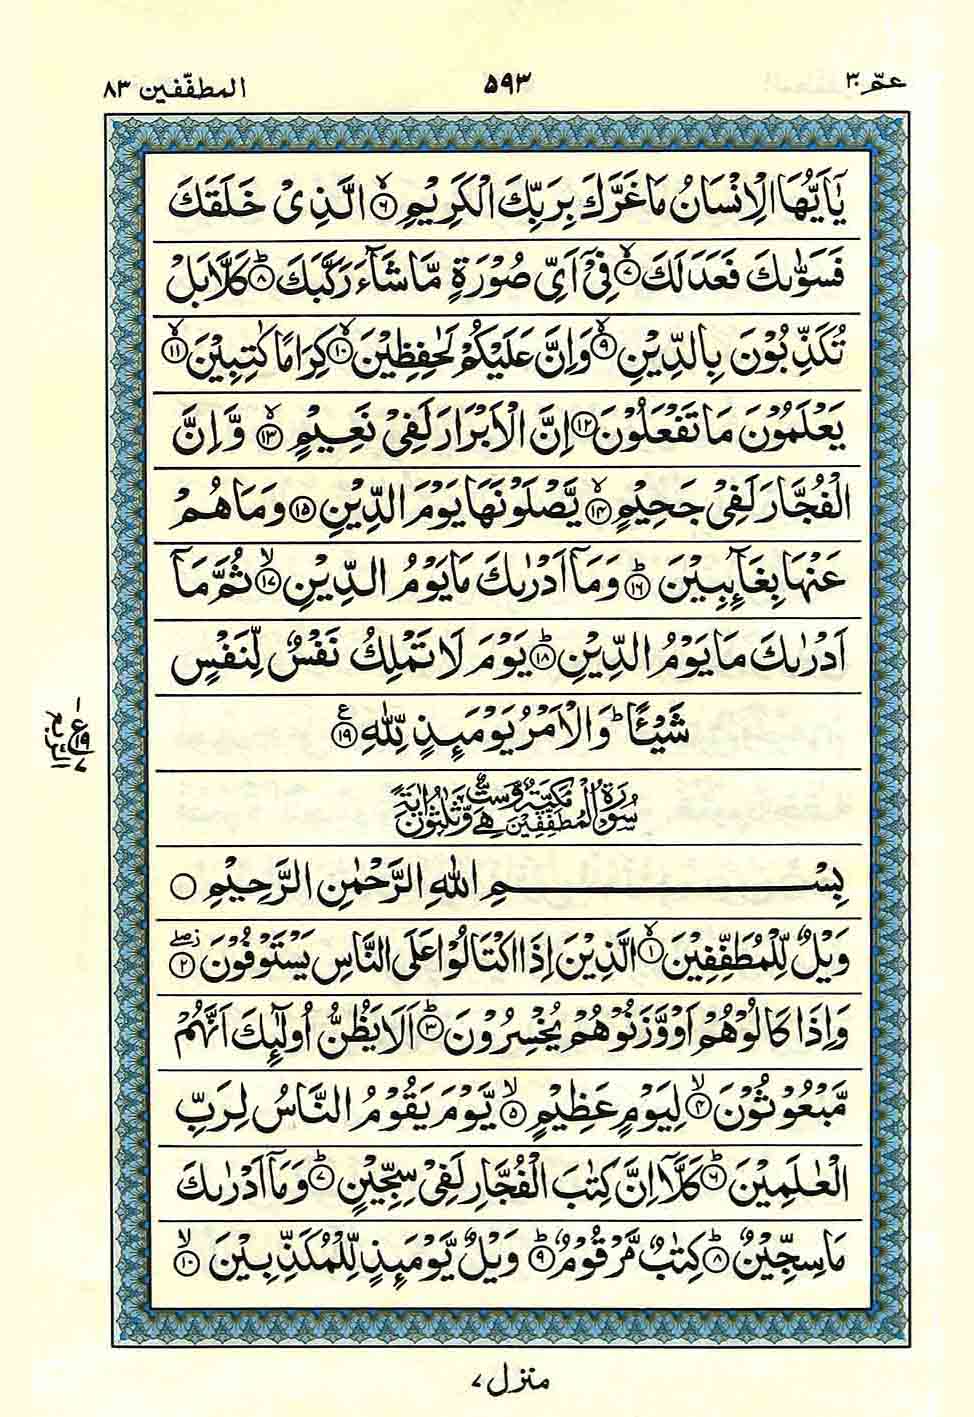 عمّ ٣٠
٥٩٣
المطفّفين ٨٣
يٰۤاَيُّهَا الْاِنْسَانُ مَا غَرَّكَ بِرَبِّكَ الْكَرِيْمِ ۙ﴿٦﴾ الَّذِىْ خَلَقَكَ
فَسَوّٰىكَ فَعَدَلَكَ ۙ﴿٧﴾ فِىْۤ اَىِّ صُوْرَةٍ مَّا شَآءَ رَكَّبَكَ ؕ﴿٨﴾ كَلَّا بَلْ
تُكَذِّبُوْنَ بِالدِّيْنِ ۙ﴿٩﴾ وَاِنَّ عَلَيْكُمْ لَحٰفِظِيْنَ ۙ﴿١٠﴾ كِرَامًا كٰتِبِيْنَ ۙ﴿١١﴾
يَعْلَمُوْنَ مَا تَفْعَلُوْنَ ﴿١٢﴾ اِنَّ الْاَبْرَارَ لَفِىْ نَعِيْمٍ ۙ﴿١٣﴾ وَّ اِنَّ
الْفُجَّارَ لَفِىْ جَحِيْمٍ ۙ﴿١٤﴾ يَّصْلَوْنَهَا يَوْمَ الدِّيْنِ ﴿١٥﴾ وَمَا هُمْ
عَنْهَا بِغَآىِٕبِيْنَ ؕ﴿١٦﴾ وَمَاۤ اَدْرٰىكَ مَا يَوْمُ الدِّيْنِ ۙ﴿١٧﴾ ثُمَّ مَاۤ
اَدْرٰىكَ مَا يَوْمُ الدِّيْنِ ؕ﴿١٨﴾ يَوْمَ لَا تَمْلِكُ نَفْسٌ لِّنَفْسٍ
شَيْـًٔا ؕ وَالْاَمْرُ يَوْمَىِٕذٍ لِّلّٰهِ ﴿١٩﴾ ع
ع ١٩ ٧
الربع
سُوْرَةُ الْمُطَفِّفِيْنَ مَكِّيَّةٌ وَّهِىَ سِتٌّ وَّثَلٰثُوْنَ اٰيَةً
بِسْمِ اللّٰهِ الرَّحْمٰنِ الرَّحِيْمِ ○
وَيْلٌ لِّلْمُطَفِّفِيْنَ ۙ﴿١﴾ الَّذِيْنَ اِذَا اكْتَالُوْا عَلَى النَّاسِ يَسْتَوْفُوْنَ ﴿٢﴾
وَاِذَا كَالُوْهُمْ اَوْ وَّزَنُوْهُمْ يُخْسِرُوْنَ ؕ﴿٣﴾ اَلَا يَظُنُّ اُولٰٓىِٕكَ اَنَّهُمْ
مَّبْعُوْثُوْنَ ۙ﴿٤﴾ لِيَوْمٍ عَظِيْمٍ ۙ﴿٥﴾ يَّوْمَ يَقُوْمُ النَّاسُ لِرَبِّ
الْعٰلَمِيْنَ ؕ﴿٦﴾ كَلَّاۤ اِنَّ كِتٰبَ الْفُجَّارِ لَفِىْ سِجِّيْنٍ ؕ﴿٧﴾ وَمَاۤ اَدْرٰىكَ
مَا سِجِّيْنٌ ؕ﴿٨﴾ كِتٰبٌ مَّرْقُوْمٌ ؕ﴿٩﴾ وَيْلٌ يَّوْمَىِٕذٍ لِّلْمُكَذِّبِيْنَ ۙ﴿١٠﴾
منزل ٧